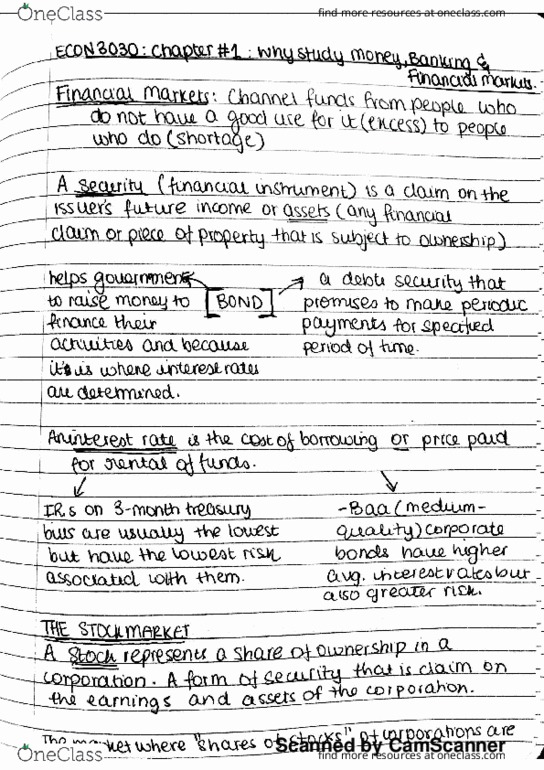 OneClass
find more resources at oneclass.com
ECON3030: Chapter #1: Why study money, Banking &
Financial Markets.
Financial Markets: Channel funds from people who
do not have a good use for it (excess) to people
who do (shortage)
A security (financial instrument) is a claim on the
issuer's future income or assets (any financial
claim or piece of property that is subject to ownership)
helps government
to raise money to
finance their
activities and because
it's is where interest rates
are determined.
[BOND]
a debt security that
promises to make periodic
payments for specified
period of time.
An interest rate is the cost of borrowing or price paid
for rental of funds.
IRs on 3-month treasury
bills are usually the lowest
but have the lowest risk
associated with them.
-Baa (medium-
quality) corporate
bonds have higher
avg. interest rates but
also greater risk.
THE STOCK MARKET
A Stock represents a share of ownership in a
corporation. A form of security that is claim on
the earnings and assets of the corporation.
The market where "shares of stocks" of corporations are
Scanned by CamScanner
OneClass
find more resources at oneclass.com